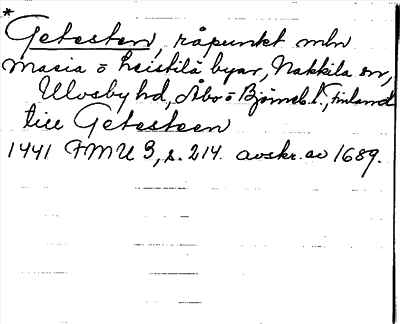 *
Getesten, råpunkt mln
Masia o Leistilä byar, Nakkila sn,
Ulvsby hd, Åbo o Björneb. l., Finland
till Getesteen
1441 FMU 3, s. 214. avskr. av 1689.